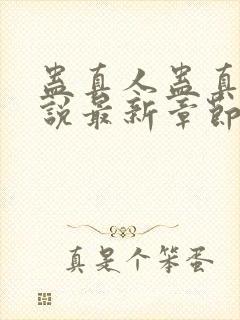 蛊真人蛊真
說最新章節
真是个笨蛋